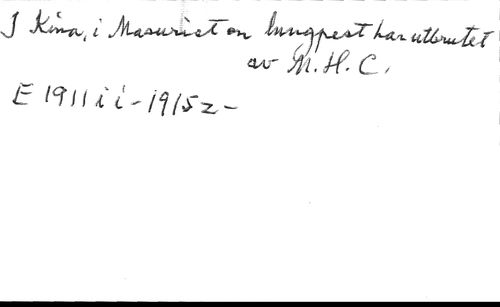 I Kina, i Masuriet on lungpest har utbrutet
av M. H. C.
E 1911 i i - 1915 z -